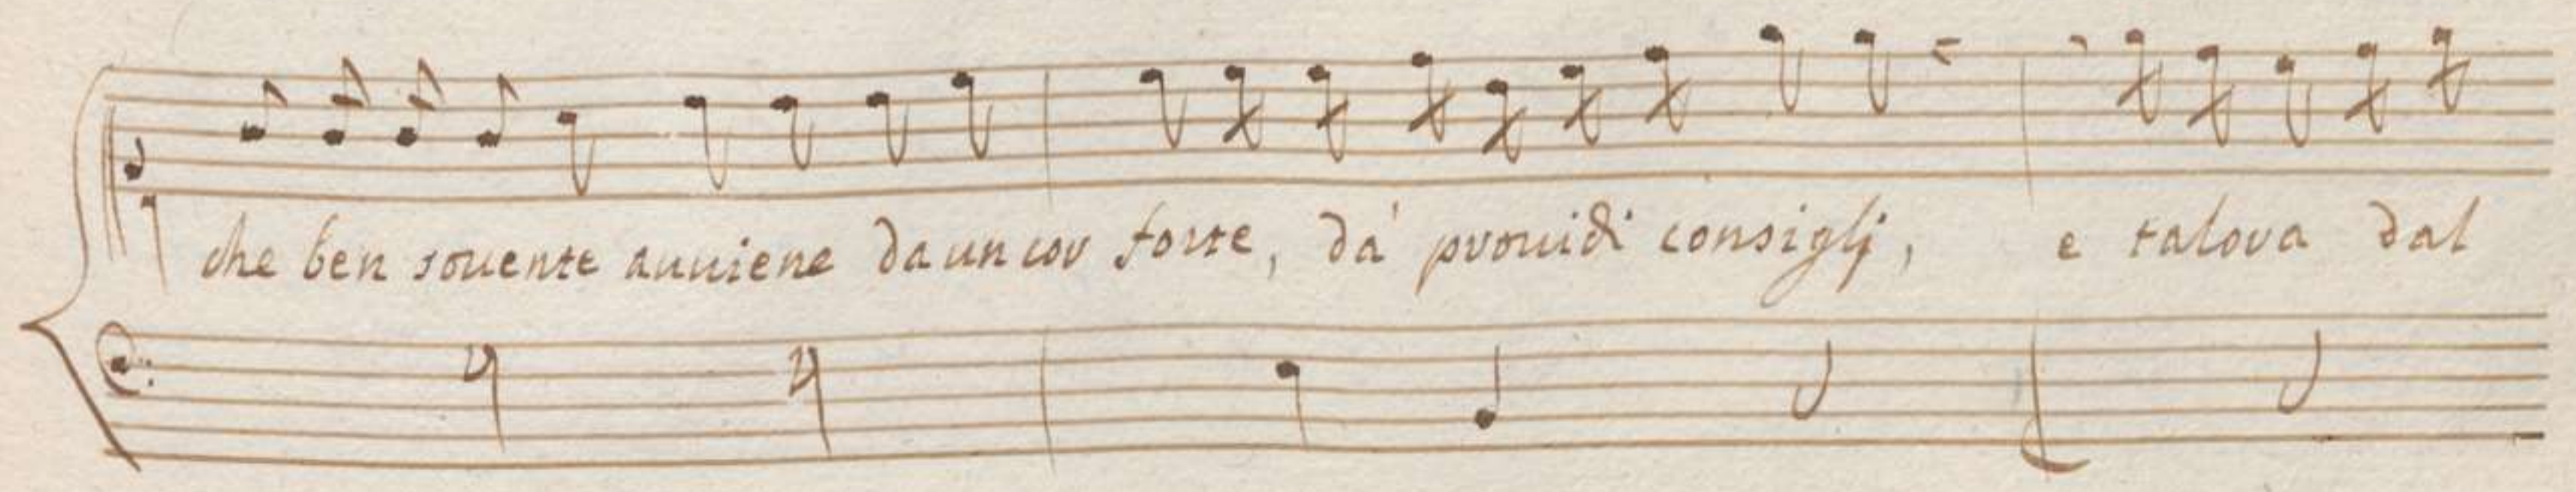 che ben souente auuiene da un cor forte, da' prouidi consiglj, e talora dal